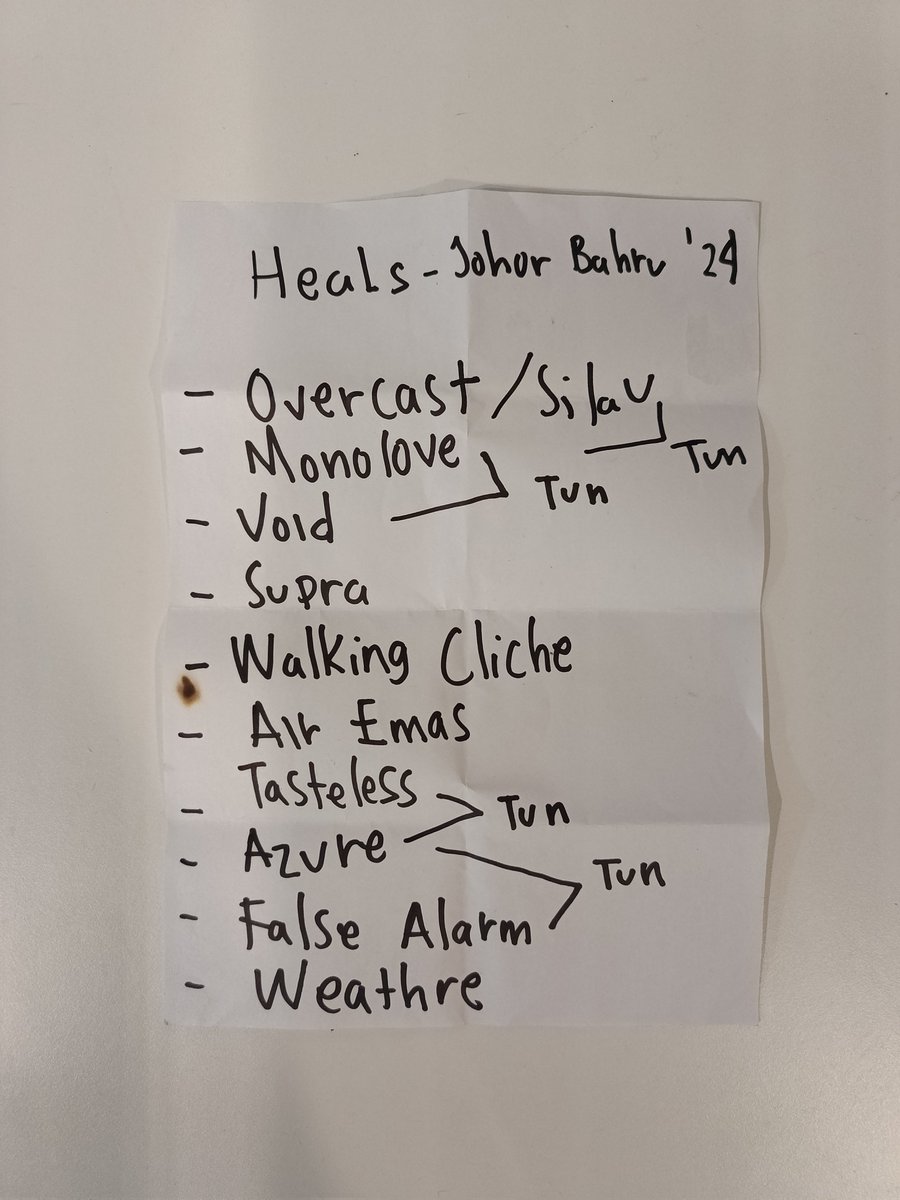 Heals - Johor Bahru '24
- Overcast / Silau
Tun
- Monolove
Tun
- Void
- Supra
- Walking Cliche
- Air Emas
- Tasteless
Tun
- Azure
Tun
- False Alarm
- Weathre